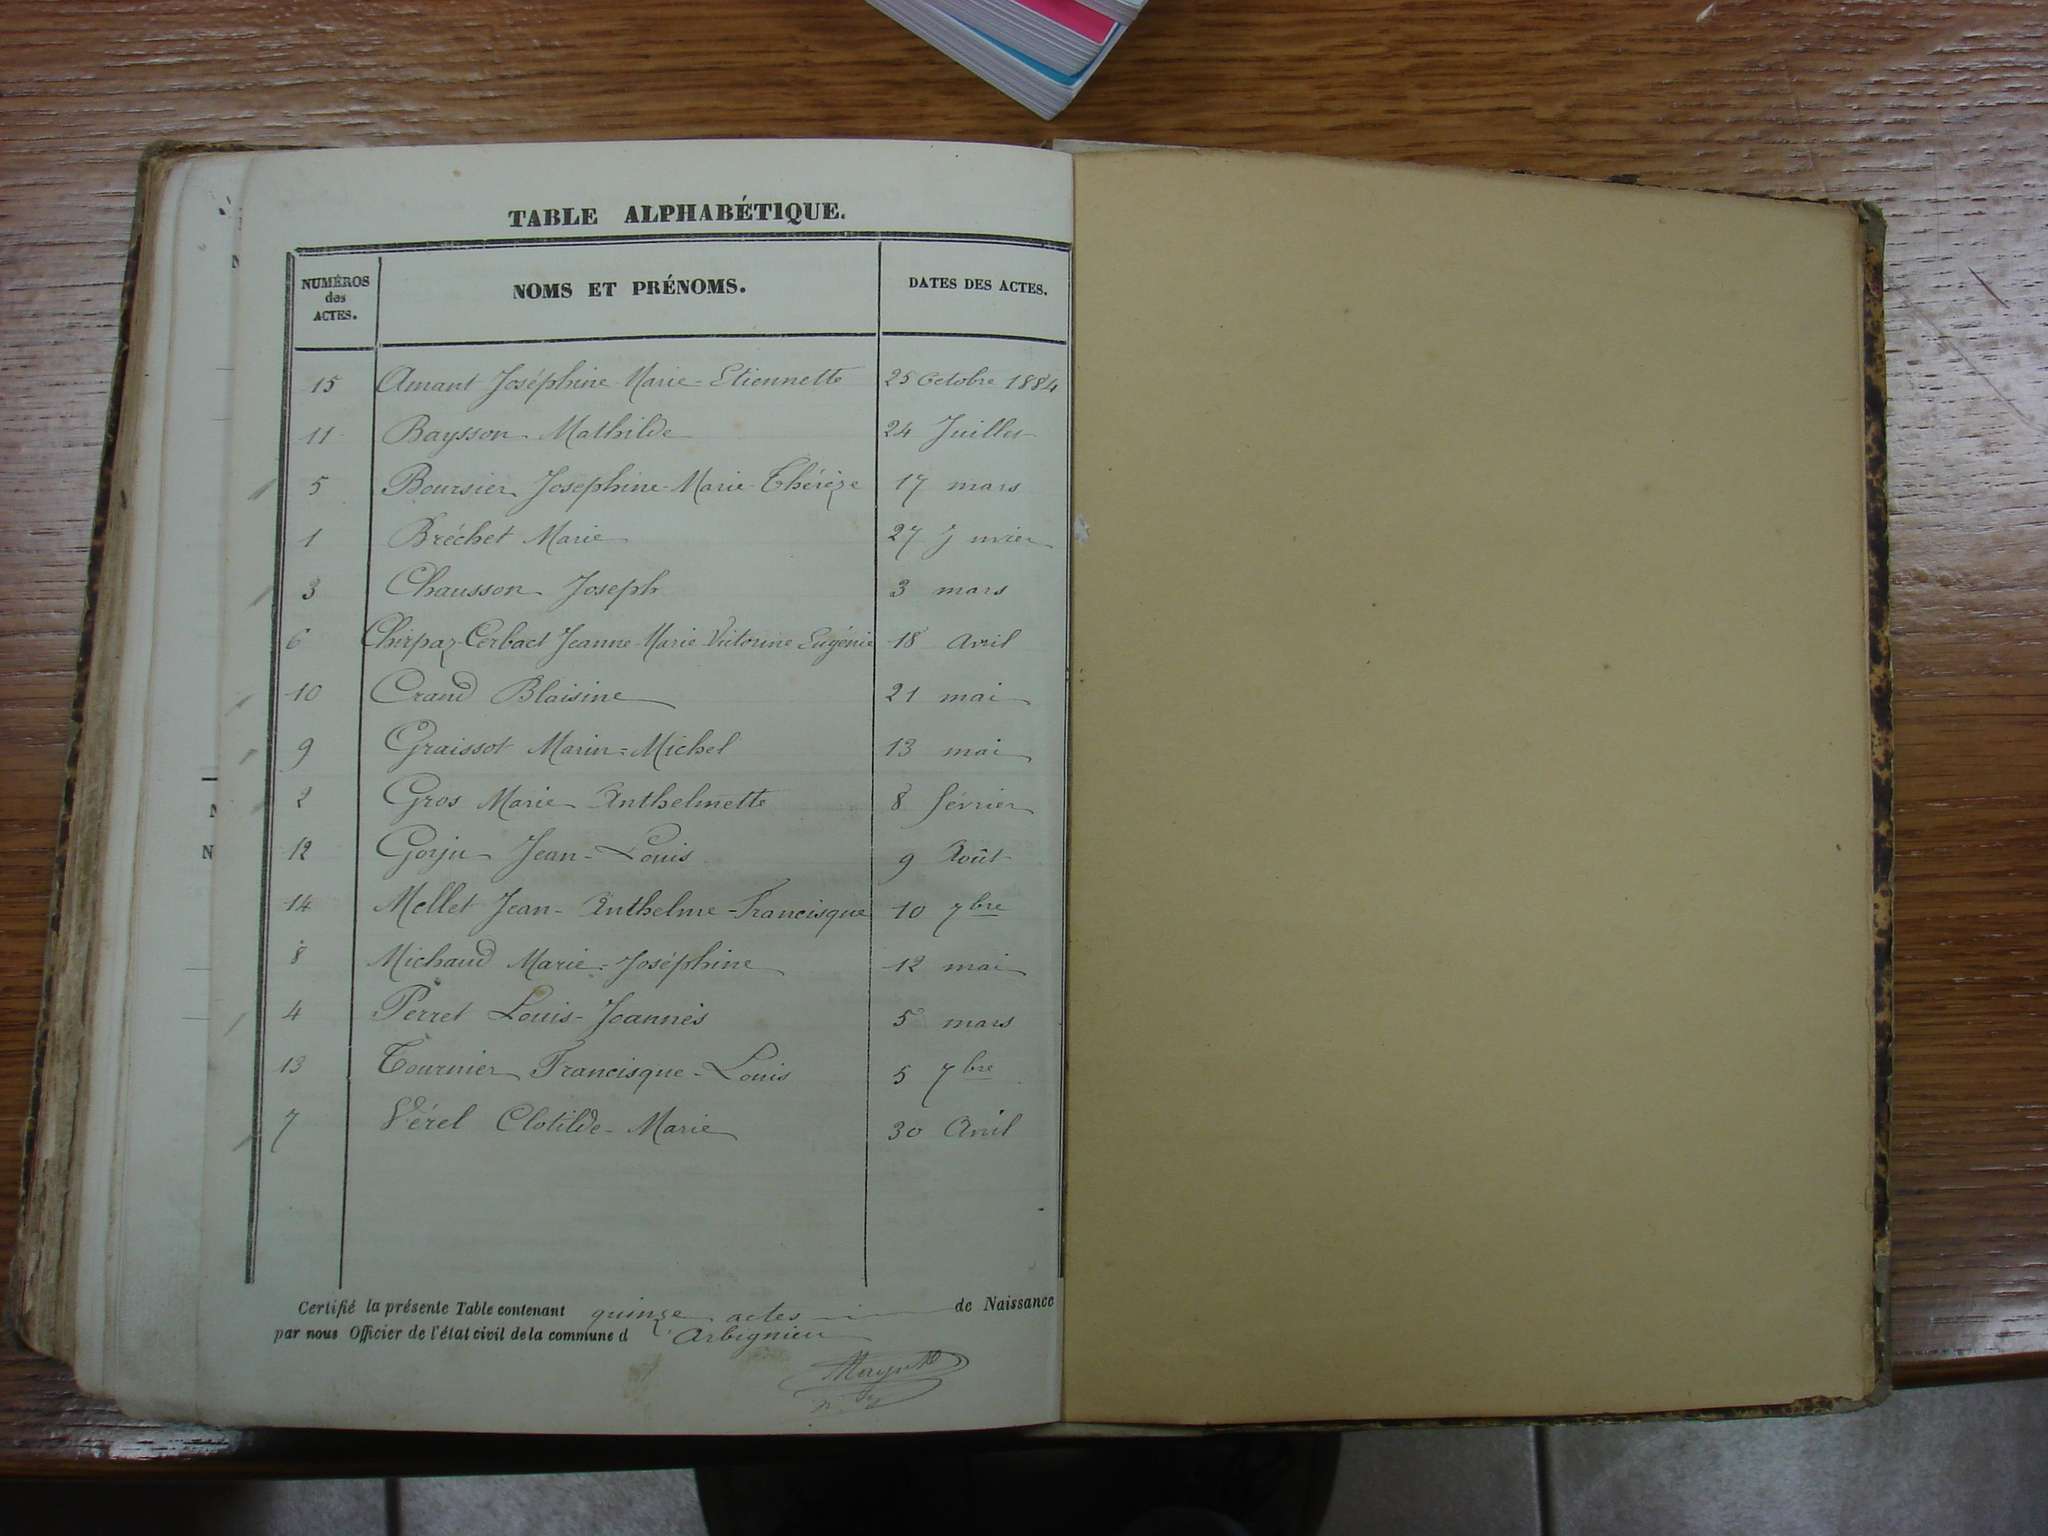 TABLE ALPHABÉTIQUE.
NUMÉROS des ACTES. NOMS ET PRÉNOMS. DATES DES ACTES.
15 Amant Joséphine Marie-Etiennette 25 Octobre 1884
11 Baysson Mathilde 24 Juillet
5 Boursier Josephine-Marie-Thérèze 17 mars
1 Bréchet Marie 27 Janvier
3 Chausson Joseph 3 mars
6 Chirpaz-Cerbact Jeanne-Marie-Victorine Eugénie 18 Avril
10 Crand Blaisine 21 mai
9 Graissot Marin=Michel 13 mai
2 Gros Marie Anthelmette 8 février
12 Gorju Jean-Louis 9 Août
14 Mellet Jean-Anthelme-Francisque 10 7bre
8 Michaud Marie=Joséphine 12 mai
4 Perret Louis-Joannès 5 mars
13 Tournier Francisque-Louis 5 7bre
7 Vérel Clotilde-Marie 30 Avril
Certifié la présente Table contenant quinze actes de Naissance
par nous Officier de l'état civil de la commune d'Arbignieu